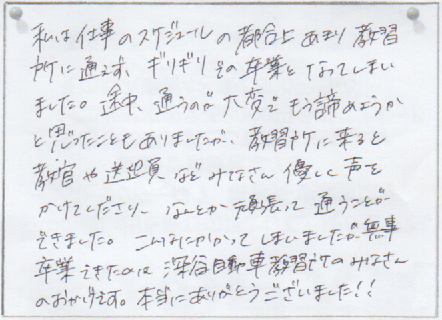 私は仕事のスケジュールの都合上あまり教習
所に通えず、ギリギリでの卒業となってしまい
ました。途中、通うのが大変でもう諦めようか
と思ったこともありましたが、教習所に来ると
教官や送迎員などみなさん優しく声を
かけてくださり、なんとか頑張って通うことが
できました。こんなにかかってしまいましたが無事
卒業できたのは深谷自動車教習所のみなさん
のおかげです。本当にありがとうございました!!